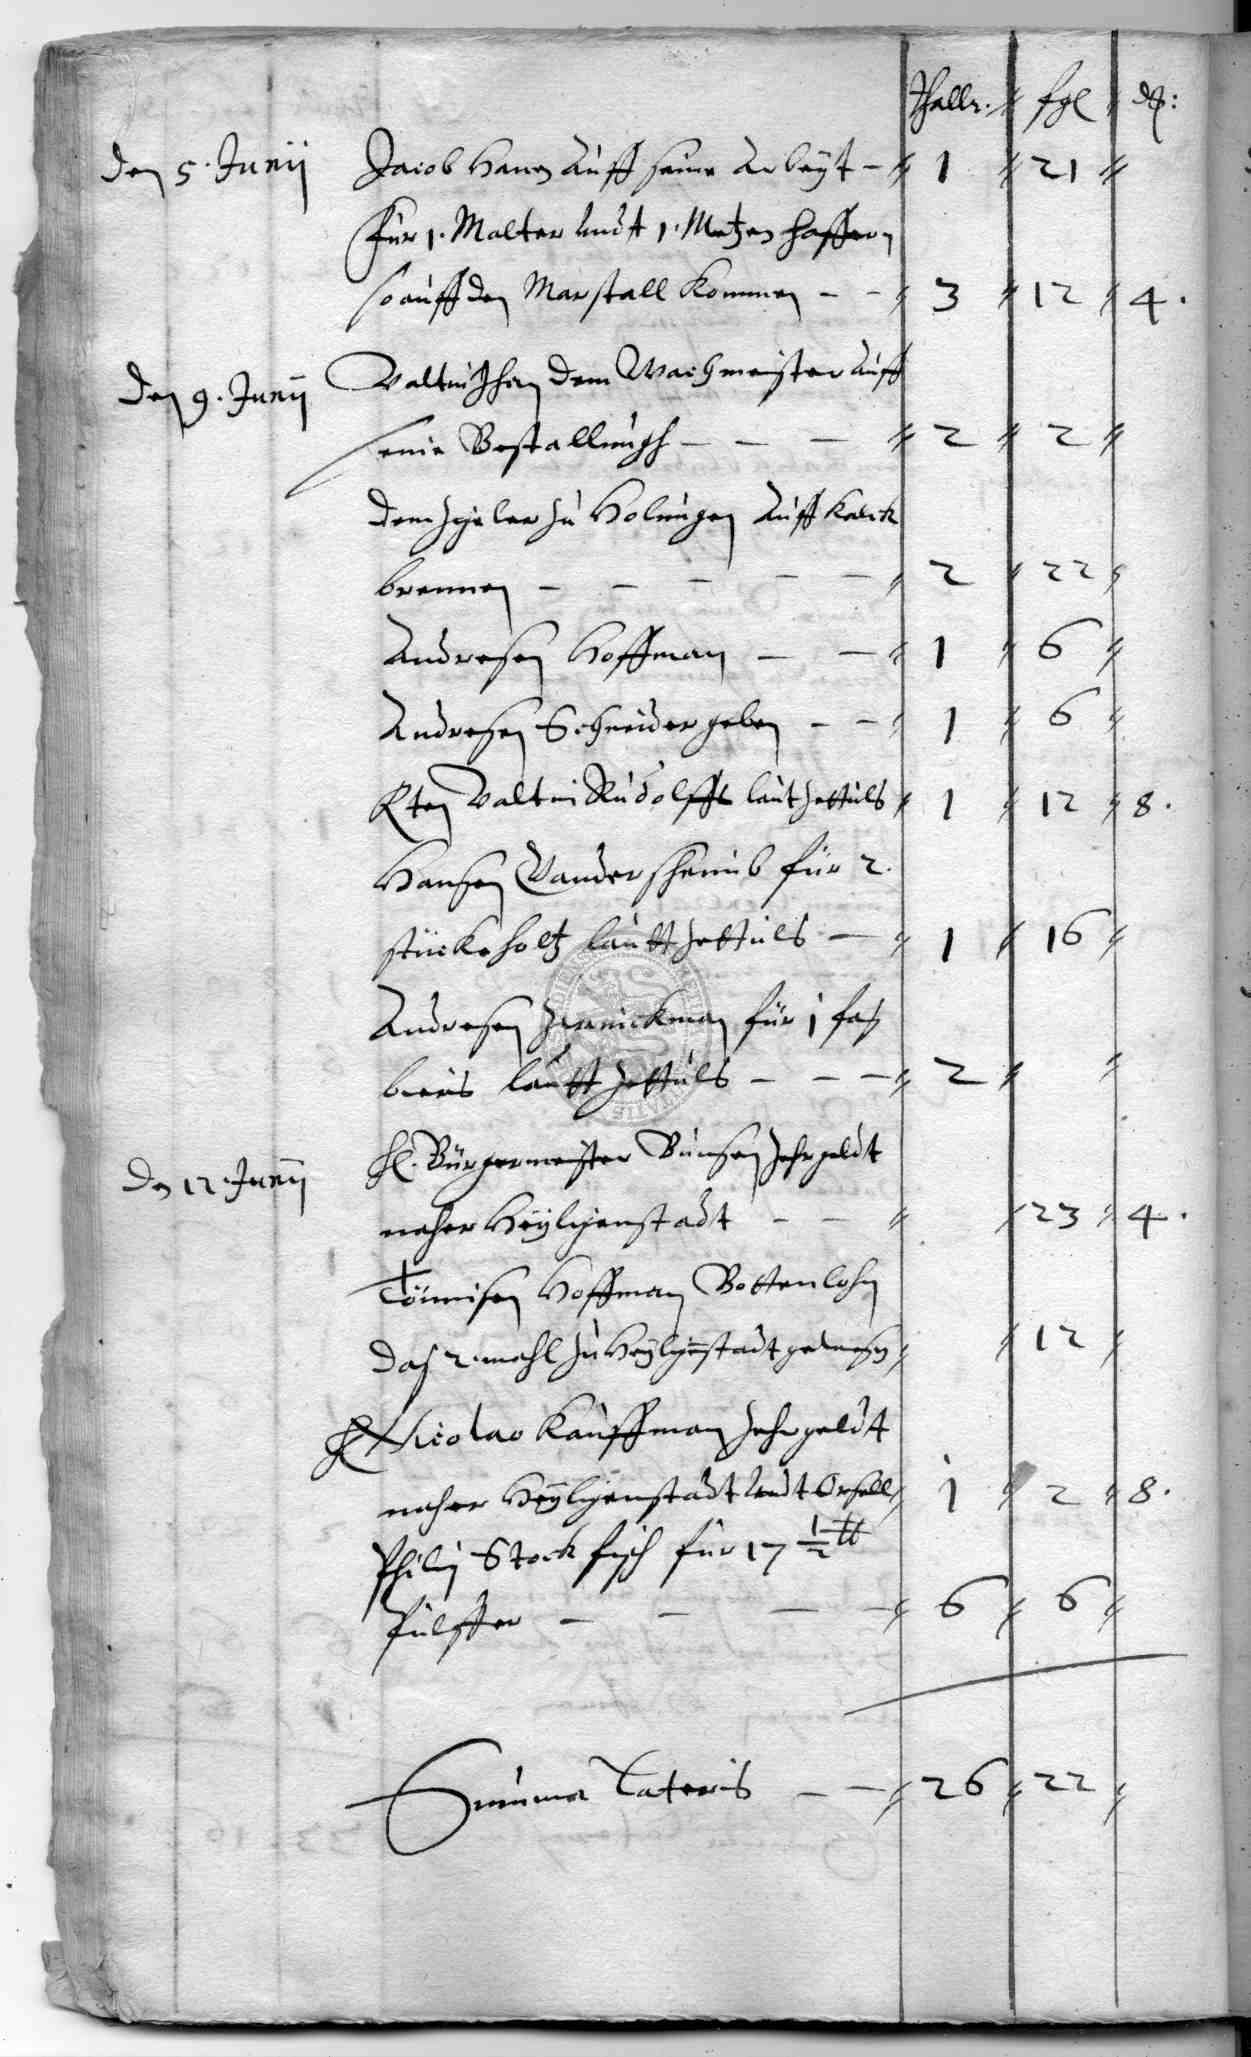 Thallr. sgl ₰:
Den 5. Junii Jacob Hanen Auff seine Arbeyt - 1 21
Für 1. Malter undt 1. Metzen haffern
so auff den Marstall kommen - - 3 12 4.
Den 9. Junii Valtin dem Wachmeister Auff
seine Bestallungh - - - 2 2
Dem Zigeler zu Holungen Auff kalck
brennen - - - - - 2 22
Andresen Hoffman - - 1 6
Andresen Schneider geben - - 1 6
Valtin Rudolffs laut Zettuls 1 12 8.
Hansen für 2.
stücke holtz lautt Zettuls - 1 16
Andresen für 1 fas
biers lautt Zettuls - - - 2
Den 12. Junii H. Bürgermeister Bunsen Zehrgeldt
naher Heyligenstadt - - 23 4.
Tönnisen Hoffman Bottenlohn
Das 2. mahl zu Heyligenstadt gewesen 12
H. Nicolao Kauffman Zehrgeldt
naher Heyligenstadt undt Orssell 1 2 8.
Philip Stockfisch für 17 1/2 ℔
Pulffer - - - - 6 6
Summa Lateris - - 26 22